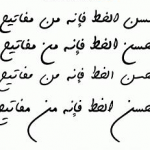 حسن الخط فإنه من مفاتيح
حسن الخط فإنه من مفاتيح
حسن الخط فإنه من مفاتيح
حسن الخط فإنه من مفاتيح